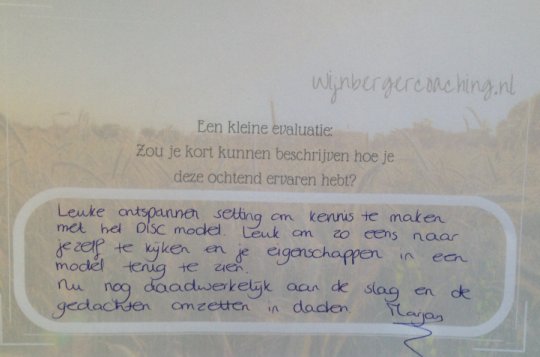 wijnbergercoaching.nl
Een kleine evaluatie:
Zou je kort kunnen beschrijven hoe je
deze ochtend ervaren hebt?
Leuke ontspannen setting om kennis te maken
met het DISC model. Leuk om zo eens naar
jezelf te kijken en je eigenschappen in een
model terug te zien.
Nu nog daadwerkelijk aan de slag en de
gedachten omzetten in daden. Marjan